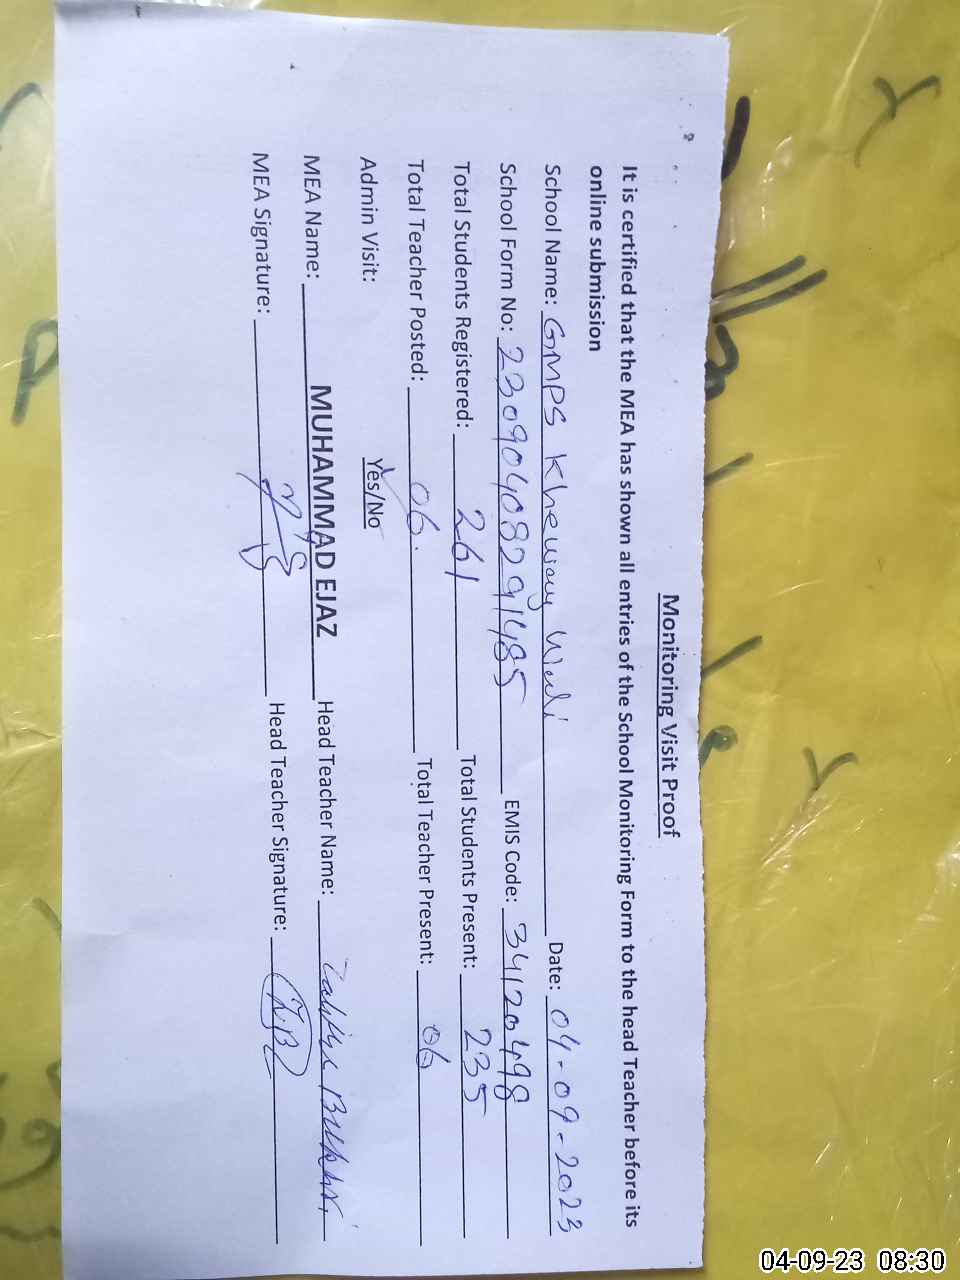 Monitoring Visit Proof
It is certified that the MEA has shown all entries of the School Monitoring Form to the head Teacher before its
online submission
School Name: GMPS Kheway Wali Date: 04-09-2023
School Form No: 23090408291485 EMIS Code: 34120498
Total Students Registered: 261 Total Students Present: 235
Total Teacher Posted: 06. Total Teacher Present: 06
Admin Visit: Yes/No
MEA Name: MUHAMMAD EJAZ Head Teacher Name: Bukhari
MEA Signature: Head Teacher Signature:
04-09-23 08:30